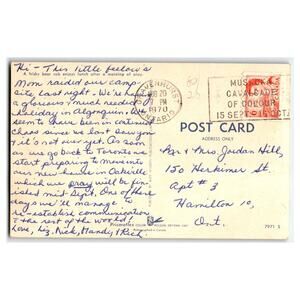 Hi - This little fellow's
A frisky bear cub enjoys lunch after a morning of play.
Mom raided our camp-
site last night. We're having
a glorious & much needed
holiday in Algonquin. We
seem to have been in continual
chaos since we last saw you &
it's not over yet. As soon
as we go back to Toronto we
start preparing to move into
our new home in Oakville
which we pray will be fin-
ished mid Sept. One of these
days we'll manage to
re-establish communication
& the rest of the world!
Love, Liz, Nick, Mandy & Rich.
GRAVENHURST
PM
1970
ONTARIO
MUSKOKA
CAVALCADE
OF COLOUR
15 SEPT
OCT
POST CARD
ADDRESS ONLY
Mr & Mrs. Jordan Hill,
150 Herkimer St.
Apt # 3
Hamilton 10,
Ont.
7971 S